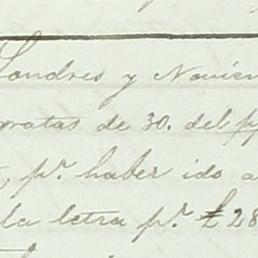 Londres y Novien
gratas de 30. del pp
, pr. haber ido a
la letra pr. £28